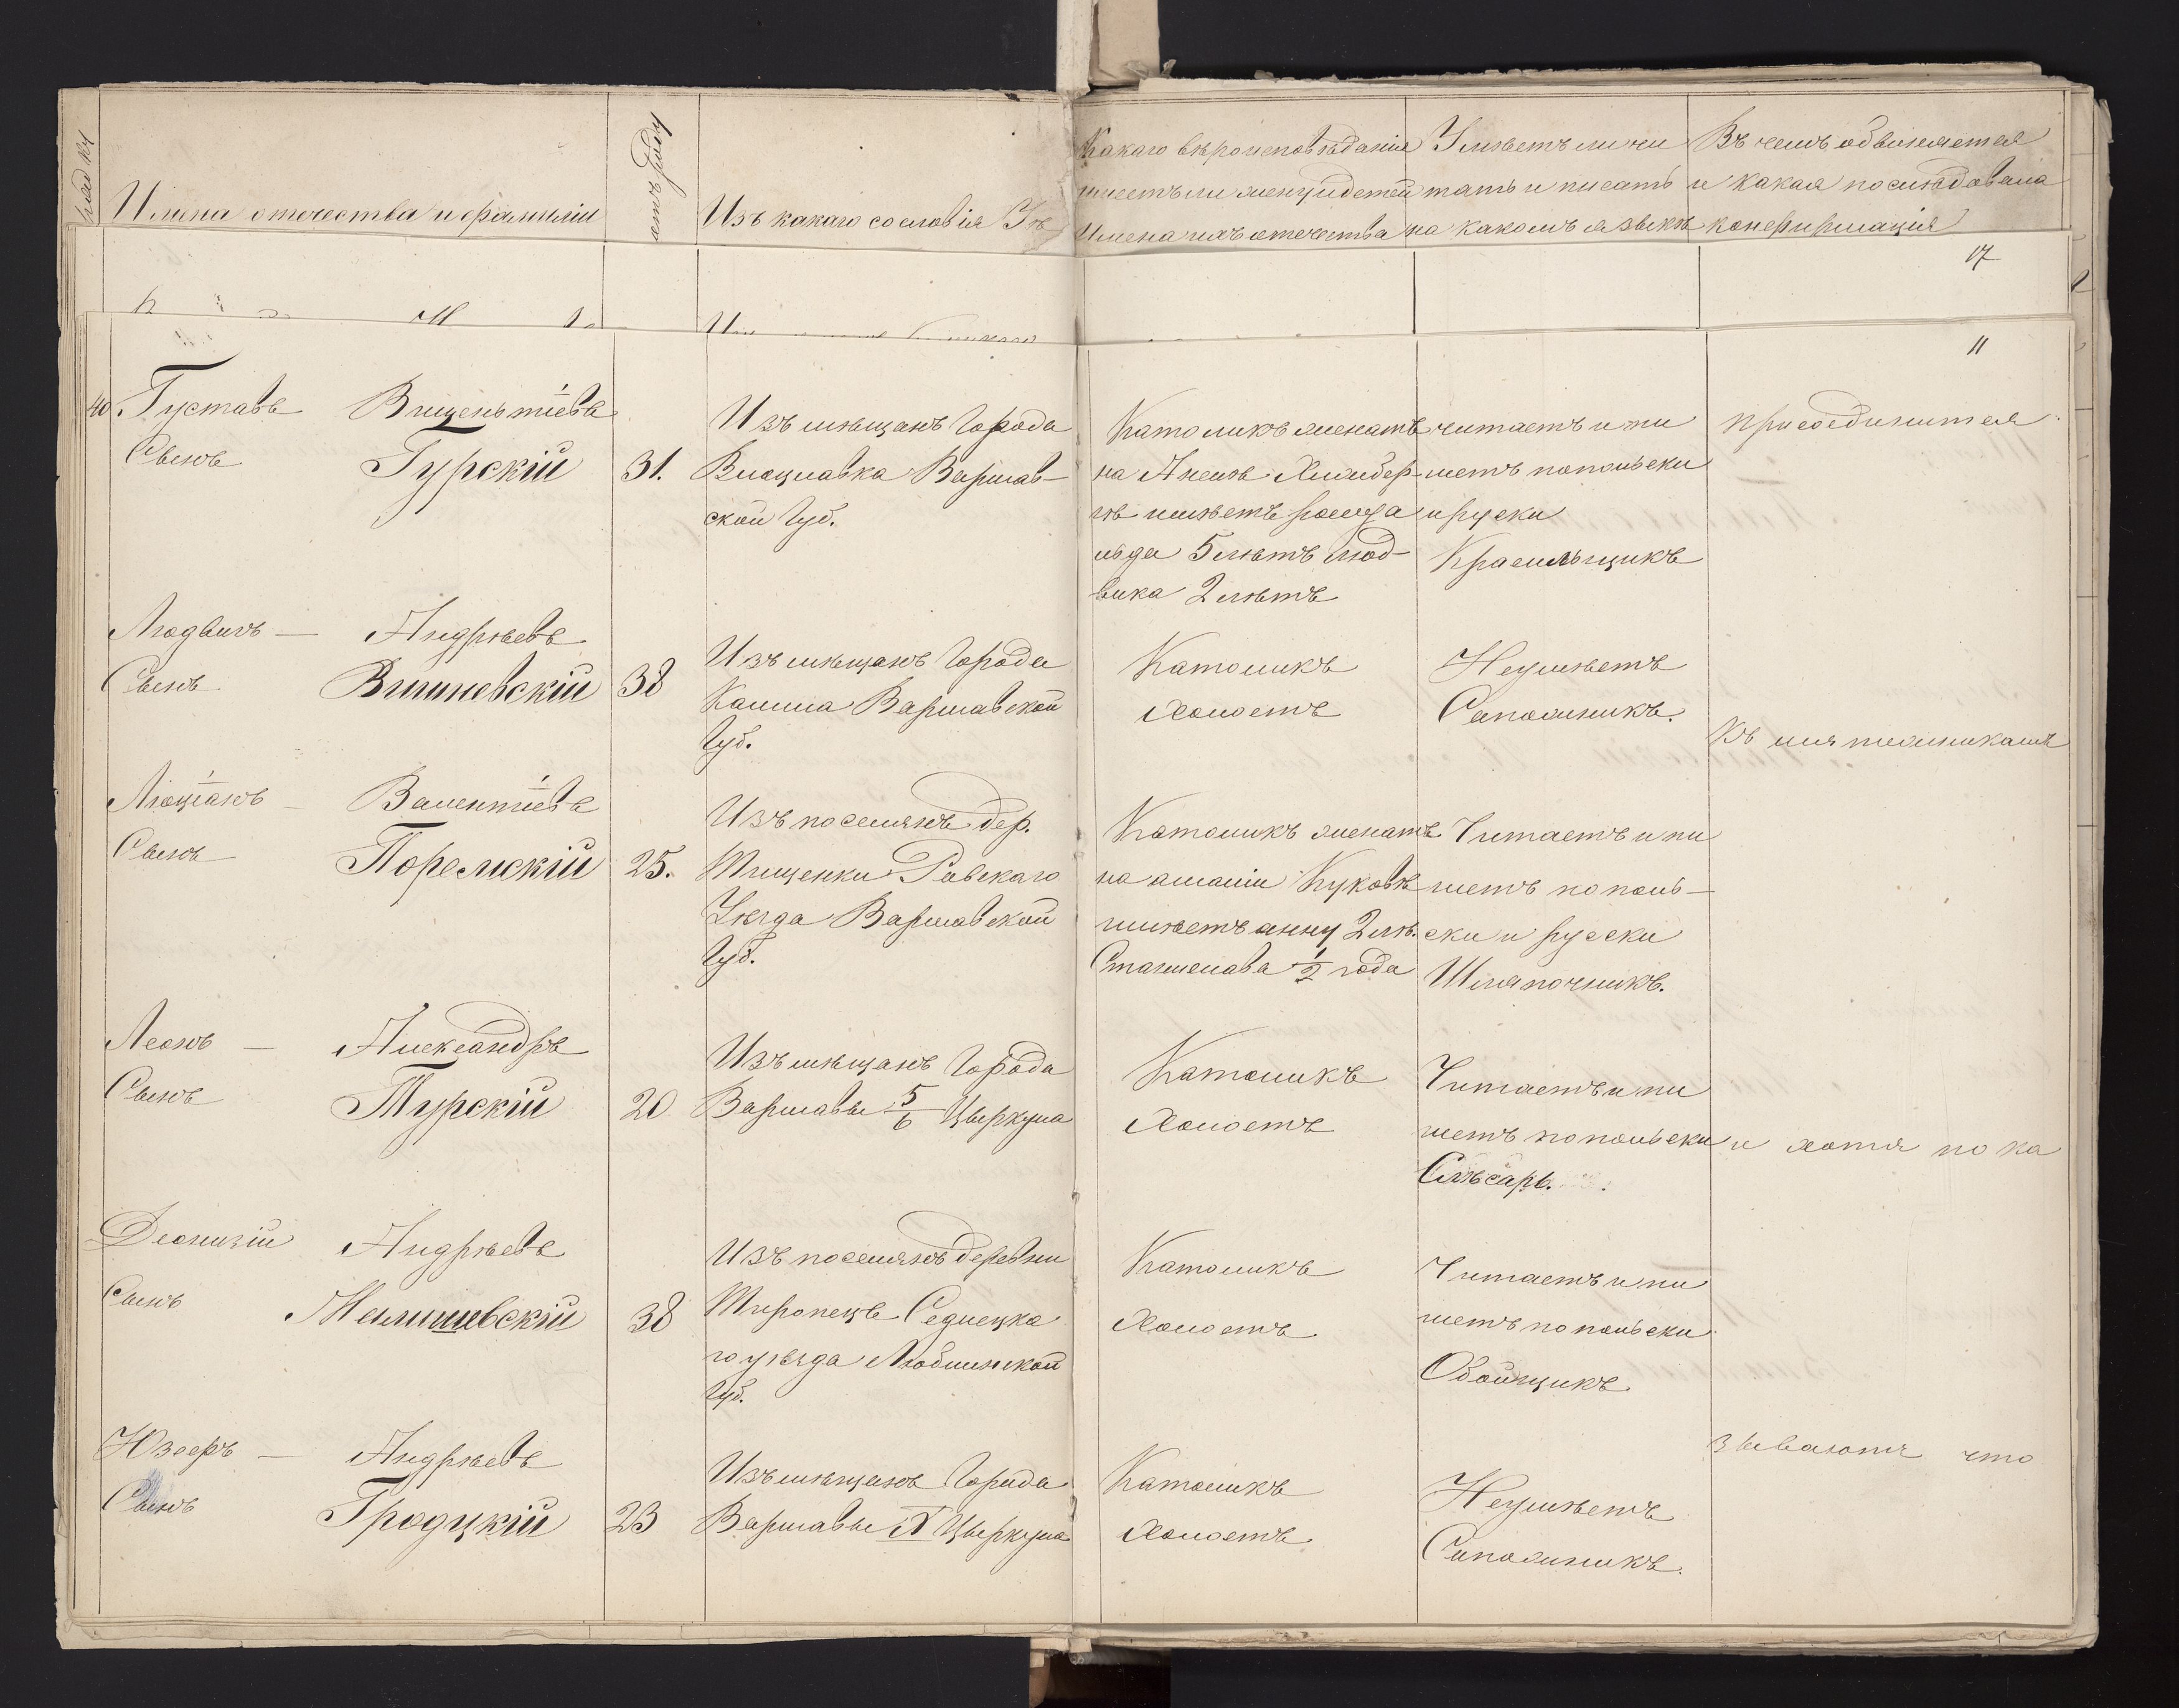 Имена отечества и фамилии
летъ роду
Изъ какаго сословія
Какаго вѣроисповѣданія
имеетъ ли жену и детей
Имена ихъ отечества
Умѣетъ ли чи
тать и писать
на какомъ языкѣ
Въ чемъ обвиняется
и какая последовала
конфирмація
17
11
40. Густавъ Вицентіевъ
Сынъ Гурскій
31.
Изъ мѣщанъ Города
Влоцлавка Варшав-
ской Губ.
Католикъ женатъ
на
имѣетъ
5 лѣтъ Люд-
вика 2 лѣтъ
читаетъ и пи
шетъ попольски
и руски
Красильщикъ
присоединится
Людвигъ — Андрѣевъ
Сынъ Вишневскій
38
Изъ мѣщанъ Города
Калиша Варшавской
Губ.
Католикъ
Холостъ
Неумѣетъ
Сапожникъ.
Къ мятежникамъ
Люціанъ — Валентіевъ
Сынъ Поремскій
25.
Изъ поселянъ дер.
Равскаго
Уѣзда Варшавской
Губ.
Католикъ женатъ
на
имѣетъ анну 2 лѣ.
Станислава 1/2 года
Читаетъ и пи
шетъ по поль-
ски и русски
Шляпочникъ.
Леонъ — Александръ
Сынъ Турскій
20
Изъ мѣщанъ Города
Варшавы 5/6 Цыркула
Католикъ
Холостъ
Читаетъ и пи
шетъ по польски
Слѣсарь.
и хотя по ка
Деонизій Андрѣевъ
Сынъ
38
Изъ поселянъ деревни
Седлецка
го уѣзда Люблинской
Губ.
Католикъ
Холостъ
Читаетъ и пи
шетъ по польски
Обойщикъ
Юзефъ — Андрѣевъ
Сынъ Гродуцкій
23
Изъ мѣщанъ Города
Варшавы Цыркула
Католикъ
Холостъ
Неумѣетъ
Сапожникъ.
зываютъ что